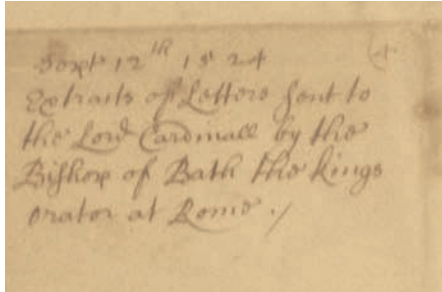 Sept 12th 1524
Extraits of Letters sent to
the Lord Cardinall by the
Bishop of Bath the kings
Orator at Rome ./